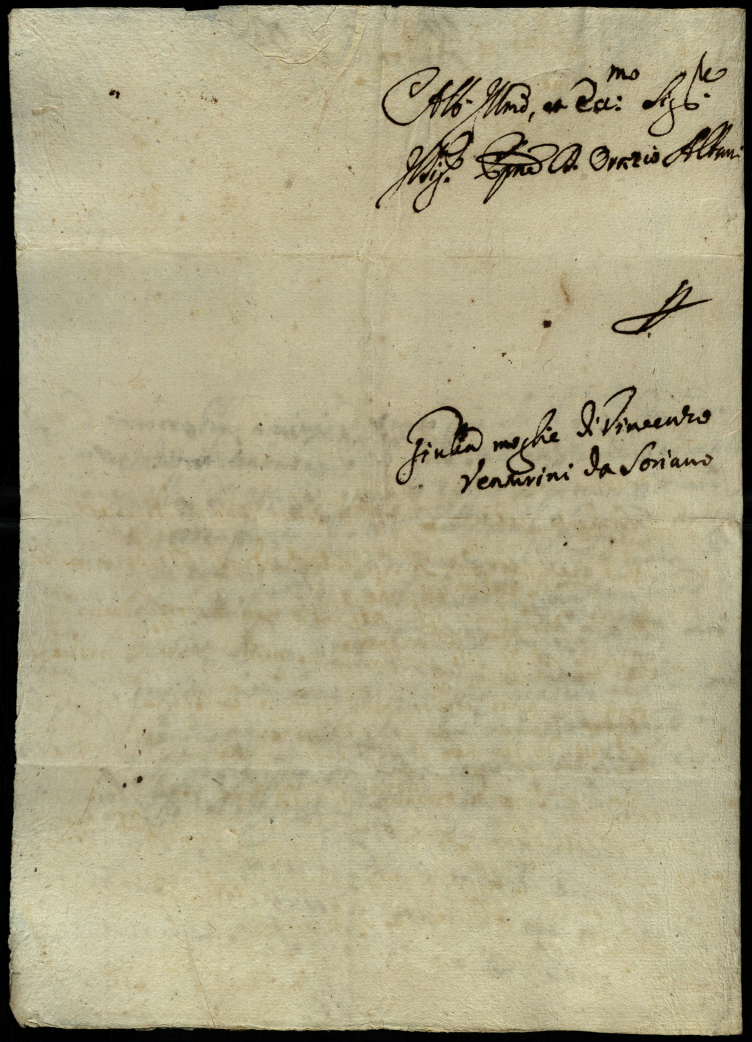 All' Ill.mo, et Ecc.mo Sig.re
Il Sig. D. Orazio Albani
Giulia moglie di Vincenzo
Venturini da Soriano